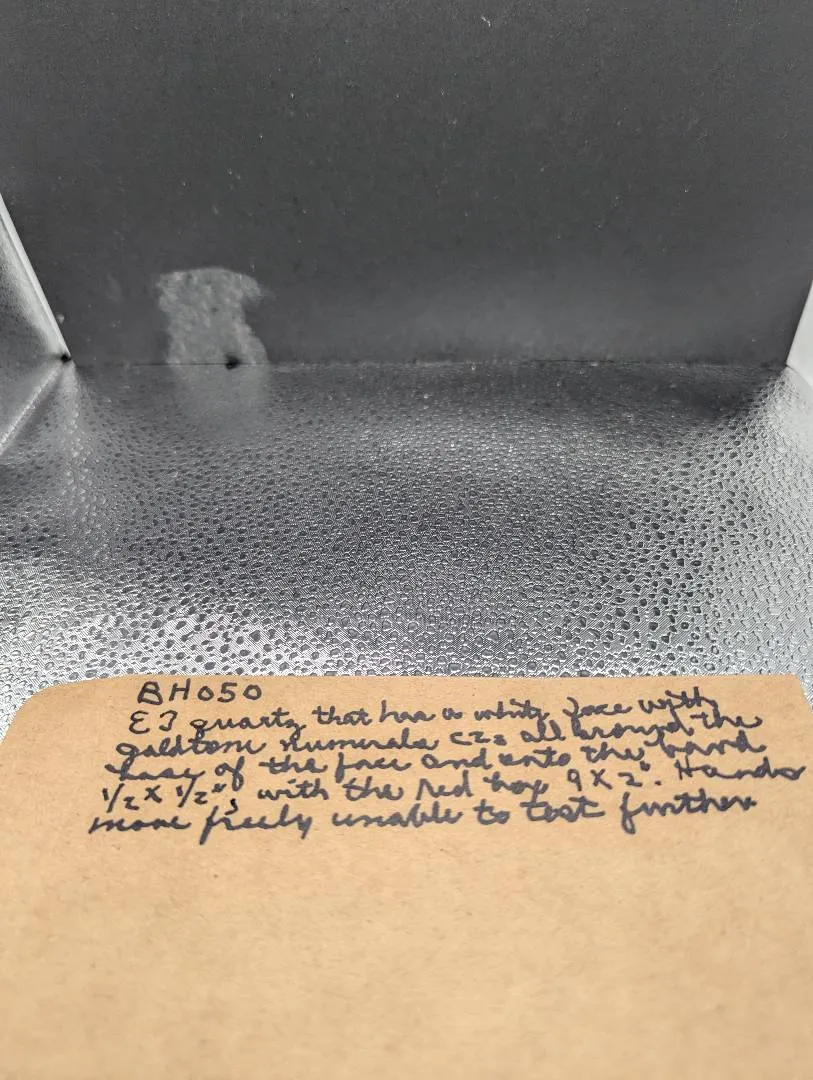 BH050
EJ quartz that has a white face with
goldtone numerals CZs all around the
base of the face and onto the band
1/2 x 1/2"s with the red box 9 X 2". Hands
move freely unable to test further